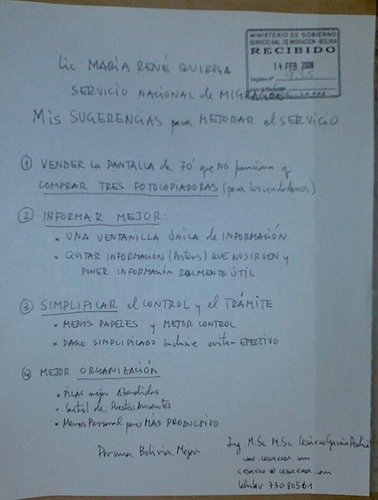 MINISTERIO DE GOBIERNO
SERVICIO NAL. DE MIGRACION - BOLIVIA
RECIBIDO
14 FEB. 2008
Lic MARÍA RENÉ QUIROGA
SERVICIO NACIONAL de MIGRACIÓN
MIS SUGERENCIAS para MEJORAR el SERVICIO
① VENDER la PANTALLA de 70' que NO funciona y
COMPRAR TRES FOTOCOPIADORAS (para los ciudadanos)
② INFORMAR MEJOR:
• UNA VENTANILLA ÚNICA de INFORMACIÓN
• QUITAR INFORMACIÓN (Posters) QUE NO SIRVEN y
PONER INFORMACIÓN REALMENTE ÚTIL
③ SIMPLIFICAR el CONTROL y el TRÁMITE
• MENOS PAPELES y MEJOR CONTROL
• PAGO SIMPLIFICADO inclusive evitar EFECTIVO
④ MEJOR ORGANIZACIÓN
• FILAS mejor Atendidas
• Control de Puestos Ausentes
• Menos Personal pero MAS PRODUCTIVO
Por una Bolivia Mejor
Ing. M.Sc M.Sc Cesáreo García
www.cesarox.com
Celular 73080561